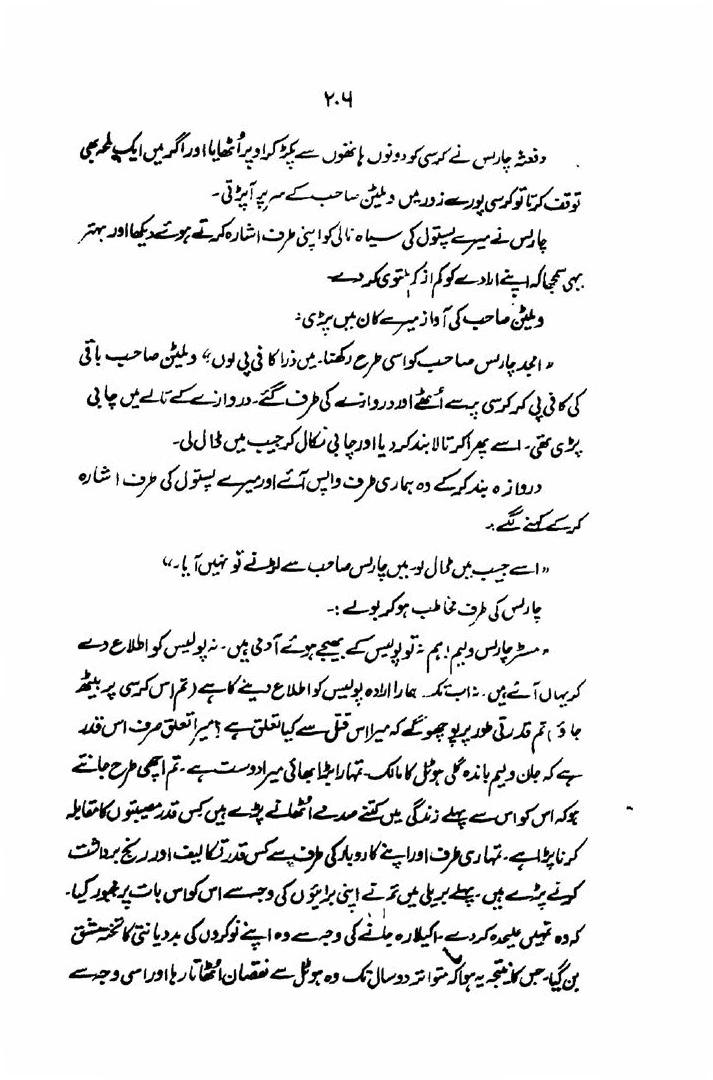 ۲۰۶
دفعتہً چارلس نے کرسی کو دونوں ہاتھوں سے پکڑ کر اوپر اُٹھایا اور اگر میں ایک لمحہ بھی
توقف کرتا تو کرسی پورے زور میں ولیٹن صاحب کے سر پر آپڑتی۔
چارلس نے میرے پستول کی سیاہ نالی کو اپنی طرف اشارہ کرتے ہوئے دیکھا اور بہتر
یہی سمجھا کہ اپنے ارادے کو کم از کم ملتوی کر دے۔
ولیٹن صاحب کی آواز میرے کان میں پڑی:
"امجد چارلس صاحب کو اسی طرح رکھنا۔ میں ذرا کافی پی لوں" ولیٹن صاحب باقی
کی کافی پی کر کرسی پر سے اُٹھے اور دروازے کی طرف گئے۔ دروازے کے تالے میں چابی
پڑی تھی۔ اسے پھرا کر تالا بند کر دیا اور چابی نکال کر جیب میں ڈال لی۔
دروازہ بند کر کے وہ ہماری طرف واپس آئے اور میرے پستول کی طرف اشارہ
کر کے کہنے لگے:۔
"اسے جیب میں ڈال لو۔ میں چارلس صاحب سے لڑنے تو نہیں آیا۔"
چارلس کی طرف مخاطب ہو کر بولے:۔
"مسٹر چارلس ولیم! ہم نہ تو پولیس کے بھیجے ہوئے آدمی ہیں۔ نہ پولیس کو اطلاع دے
کر یہاں آئے ہیں۔ نہ اب تک ہمارا ارادہ پولیس کو اطلاع دینے کا ہے (تم اس کرسی پر بیٹھ
جاؤ) تم قدرتی طور پر پوچھو گے کہ میرا اس قتل سے کیا تعلق ہے؟ میرا تعلق صرف اس قدر
ہے کہ جان ولیم باندہ گلی ہوٹل کا مالک۔ تمہارا بڑا بھائی میرا دوست ہے۔ تم اچھی طرح جانتے
ہو کہ اس کو اس سے پہلے زندگی میں کتنے صدمے اُٹھانے پڑے ہیں کس قدر مصیبتوں کا مقابلہ
کرنا پڑا ہے۔ تمہاری طرف اور اپنے کاروبار کی طرف سے کس قدر تکالیف اور رنج برداشت
کرنے پڑے ہیں۔ پہلے بریلی میں تم نے اپنی برائیوں کی وجہ سے اس کو اس بات پر مجبور کیا۔
کہ وہ تمہیں علیحدہ کر دے۔ اکیلا رہ جانے کی وجہ سے وہ اپنے نوکروں کی بددیانتی کا تختہ مشق
بن گیا۔ جس کا نتیجہ یہ ہوا کہ متواتر دو سال تک وہ ہوٹل سے نقصان اُٹھاتا رہا اور اسی وجہ سے